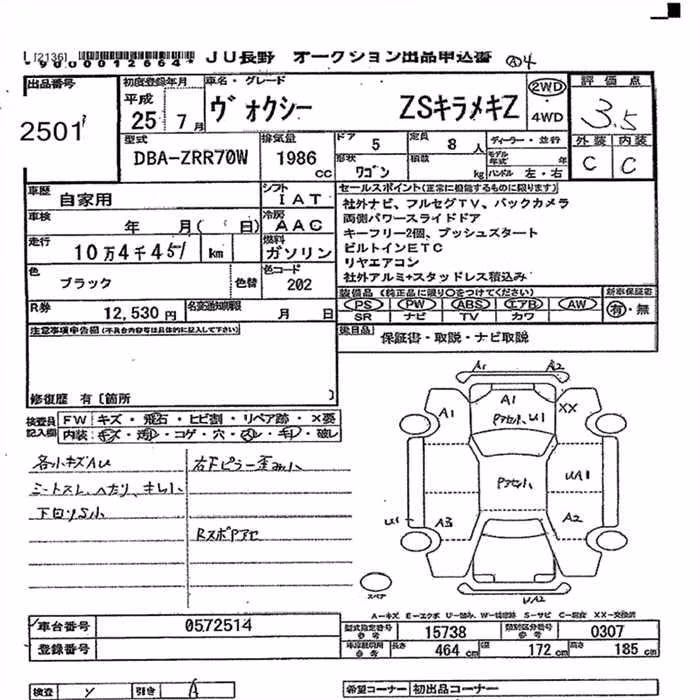 [2136] JU長野 オークション出品申込書 Ⓐ4
*9000012664*
出品番号
2501
初度登録年月
平成
25年7月
車名・グレード
ヴォクシー ZSキラメキZ
2WD
4WD
評価点
3.5
外装 内装
C C
型式
DBA-ZRR70W
排気量
1986 cc
ドア 5
定員 8 人
ディーラー・並行
形状 ワゴン
積載 kg
モデル年式 年
ハンドル 左・右
車歴 自家用
シフト IAT
車検 年 月( 日)
冷房 AAC
走行 10万4千451 km
燃料 ガソリン
色 ブラック 色替
色コード 202
R券 12,530円
名変通知期限 月 日
セールスポイント(正常に機能するものに限ります)
社外ナビ、フルセグTV、バックカメラ
両側パワースライドドア
キーフリー2個、プッシュスタート
ビルトインETC
リヤエアコン
社外アルミ+スタッドレス積込み
装備品 (純正品に限り○をつけてください)
PS PW ABS エアB AW
SR ナビ TV カワ
新車保証書
有・無
後日品 保証書・取説・ナビ取説
注意事項申告欄(不具合内容等は具体的に記入して下さい)
修復歴 有〔箇所 〕
検査員記入欄
FW キズ・飛石・ヒビ割・リペア跡・×要
内装 キズ・汚レ・コゲ・穴・スレ・キレ・破レ
各小キズAU
シートスレ、ヘタリ、キレ小
下回りS小
右Fピラー歪み小
RスポPアセ
A1 A2
A1 A1 XX
Pアセ、U1
Pアセ
UA1
U1 A3 A2
UA2
スペア
A-キズ E-エクボ U-凹み W-補修跡 S-サビ C-腐食 XX-交換済
車台番号 0572514
登録番号
型式指定番号 参考 15738
類別区分番号 参考 0307
車庫証明用 参考 長さ 464 cm 幅 172 cm 高さ 185 cm
検査 Y 引き A
希望コーナー 初出品コーナー